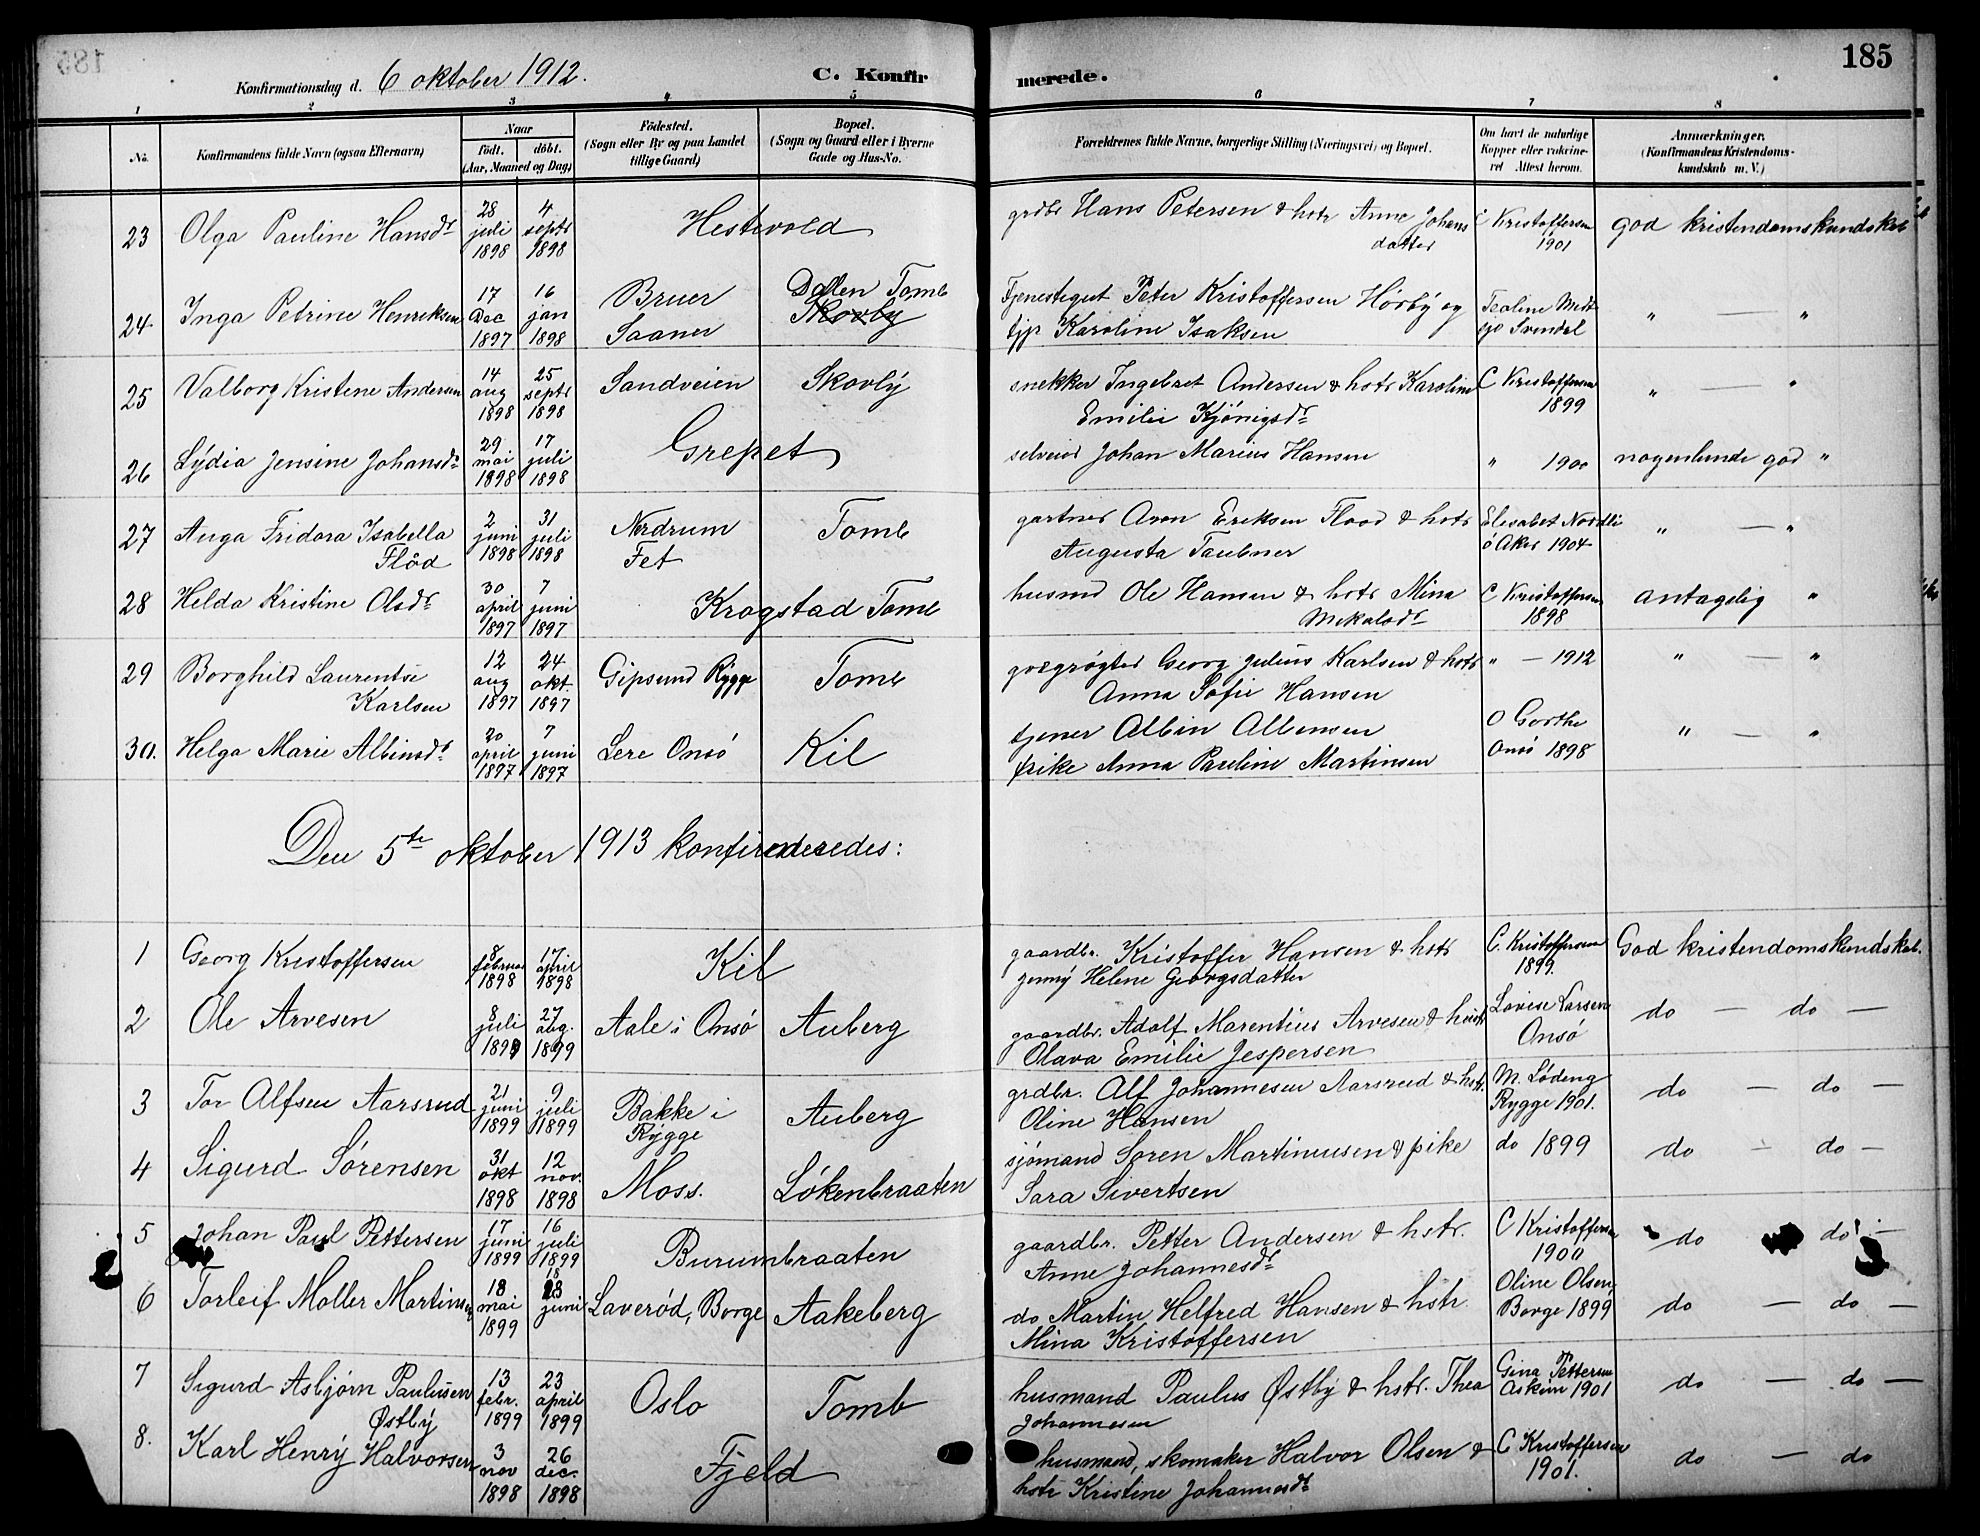 Konfirmationsdag d. 6 oktober 1912. C. Konfirmerede. 185
1 2 3 4 5 6 7 8
No. Konfirmandens fulde Navn (ogsaa Efternavn) Naar født. døbt. (Aar, Maaned og Dag) Fødested. (Sogn eller By og paa Landet tillige Gaard) Bopæl. (Sogn og Gaard eller i Byerne Gade og Hus-No. Forældrenes fulde Navne, borgerlige Stilling (Næringsvei) og Bopæl. Om havt de naturlige Kopper eller vaccineret Attest herom. Anmærkninger. (Konfirmandens Kristendomskundskab m. V.)
23 Olga Pauline Hansdr 28 juli 1898 4 septr 1898 Hestevold grdbr Hans Petersen & hstr Anne Johansdatter C Kristoffersen 1901 god kristendomskundskab
24 Inga Petrine Henriksen 17 Dec 1897 16 jan 1898 Bruer Saaner Dalen Tomb Skovby Tjenestegut Peter Kristoffersen Hörbý og tjp Karoline Isaksen Svendal " — "
25 Valborg Kristene Andersen 14 aug 1898 25 septr 1898 Sandveien Skovlý snekker Ingebret Andersen & hstr Karoline Emilie Kjönigsdr C Kristoffersen 1899 " — "
26 Lýdia Jensine Johansdr 29 mai 1898 17 juli 1898 Grepet selveier Johan Marius Hansen " 1900 nogenlunde god "
27 Auga Fridora Isabella Flöd 2 juni 1898 31 juli 1898 Nerdrum Fet Tomb gartner Aron Eriksen Flood & hstr Augusta Taubner Elesabet Nordli ö Aker 1904 " — "
28 Helda Kristine Olsdr 30 april 1897 7 juni 1897 Krogstad Tomb husmd Ole Hansen & hstr Mina Mekalsdr C Kristoffersen 1898 antagelig "
29 Borghild Laurentse Karlsen 12 aug 1897 24 okt. 1897 Gipsund Rýgge Tomb Georg Julius Karlsen & hstr Anna Sofie Hansen " — 1912 " — "
30. Helga Marie Albinsdr 20 april 1897 7 juni 1897 Lere Onsö Kil tjener Albin Albensen pike Anna Pauline Martinsen O Gorthe Onsö 1898 " — "
Den 5te oktober 1913 konfirmeredes:
1 Georg Kristoffersen 8 februar 1898 17 april 1898 Kil gaardbr. Kristoffer Hansen & hstr Jenný Helene Georgsdatter C. Kristoffersen 1899. God kristendomskundskab.
2 Ole Arvesen 8 juli 1899 27 aug. 1899 Aale i Onsö Auberg gaardbr. Adolf Marentius Arvesen & hustr Olava Emilie Jespersen Lovise Larsen Onsö do — do —
3 Tor Alfsen Aarsrud 21 juni 1899 9 juli 1899 Bakke i Rýgge Auberg grdbr. Alf Johannesen Aarsrud & hstr. Oline Hansen M. Lödeng Rygge 1901. do — do —
4 Sigurd Sörensen 31 okt 1898 12 nov. 1898 Moss. Lökenbraaten sjömand Soren Martinusen & pike Sara Sivertsen do 1899 do - do —
5 Johan Paul Pettersen 17 juni 1899 16 juli 1899 Burumbraaten gaardbr. Petter Andersen & hstr. Anne Johannesdr C Kristoffersen 1900 do do —
6 Torleif Moller Martinsen 18 mai 1899 18 juni Laverød, Borge Aakeberg do Martin Helfred Hansen & hstr. Mina Kristoffersen Oline Olsen, Borge 1899 do — do —
7 Sigurd Asbjørn Paulusen Østbý 13 febr. 1899 23 april 1899 Oslo Tomb husmand Paulus Østbý & hstr. Thea Johannesen Gina Pettersen Askim 1901 do — do —
8. Karl Henrý Halvorsen 3 nov 1898 26 dec. 1898 Fjeld husmand, skomaker Halvor Olsen & hstr Kristine Johannesdr C Kristoffersen 1901. do — do